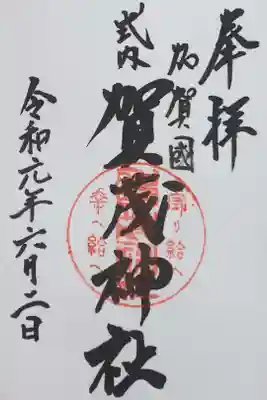 奉拝
加賀國
式内
賀茂神社
守り給へ
幸へ給へ
令和元年六月二日